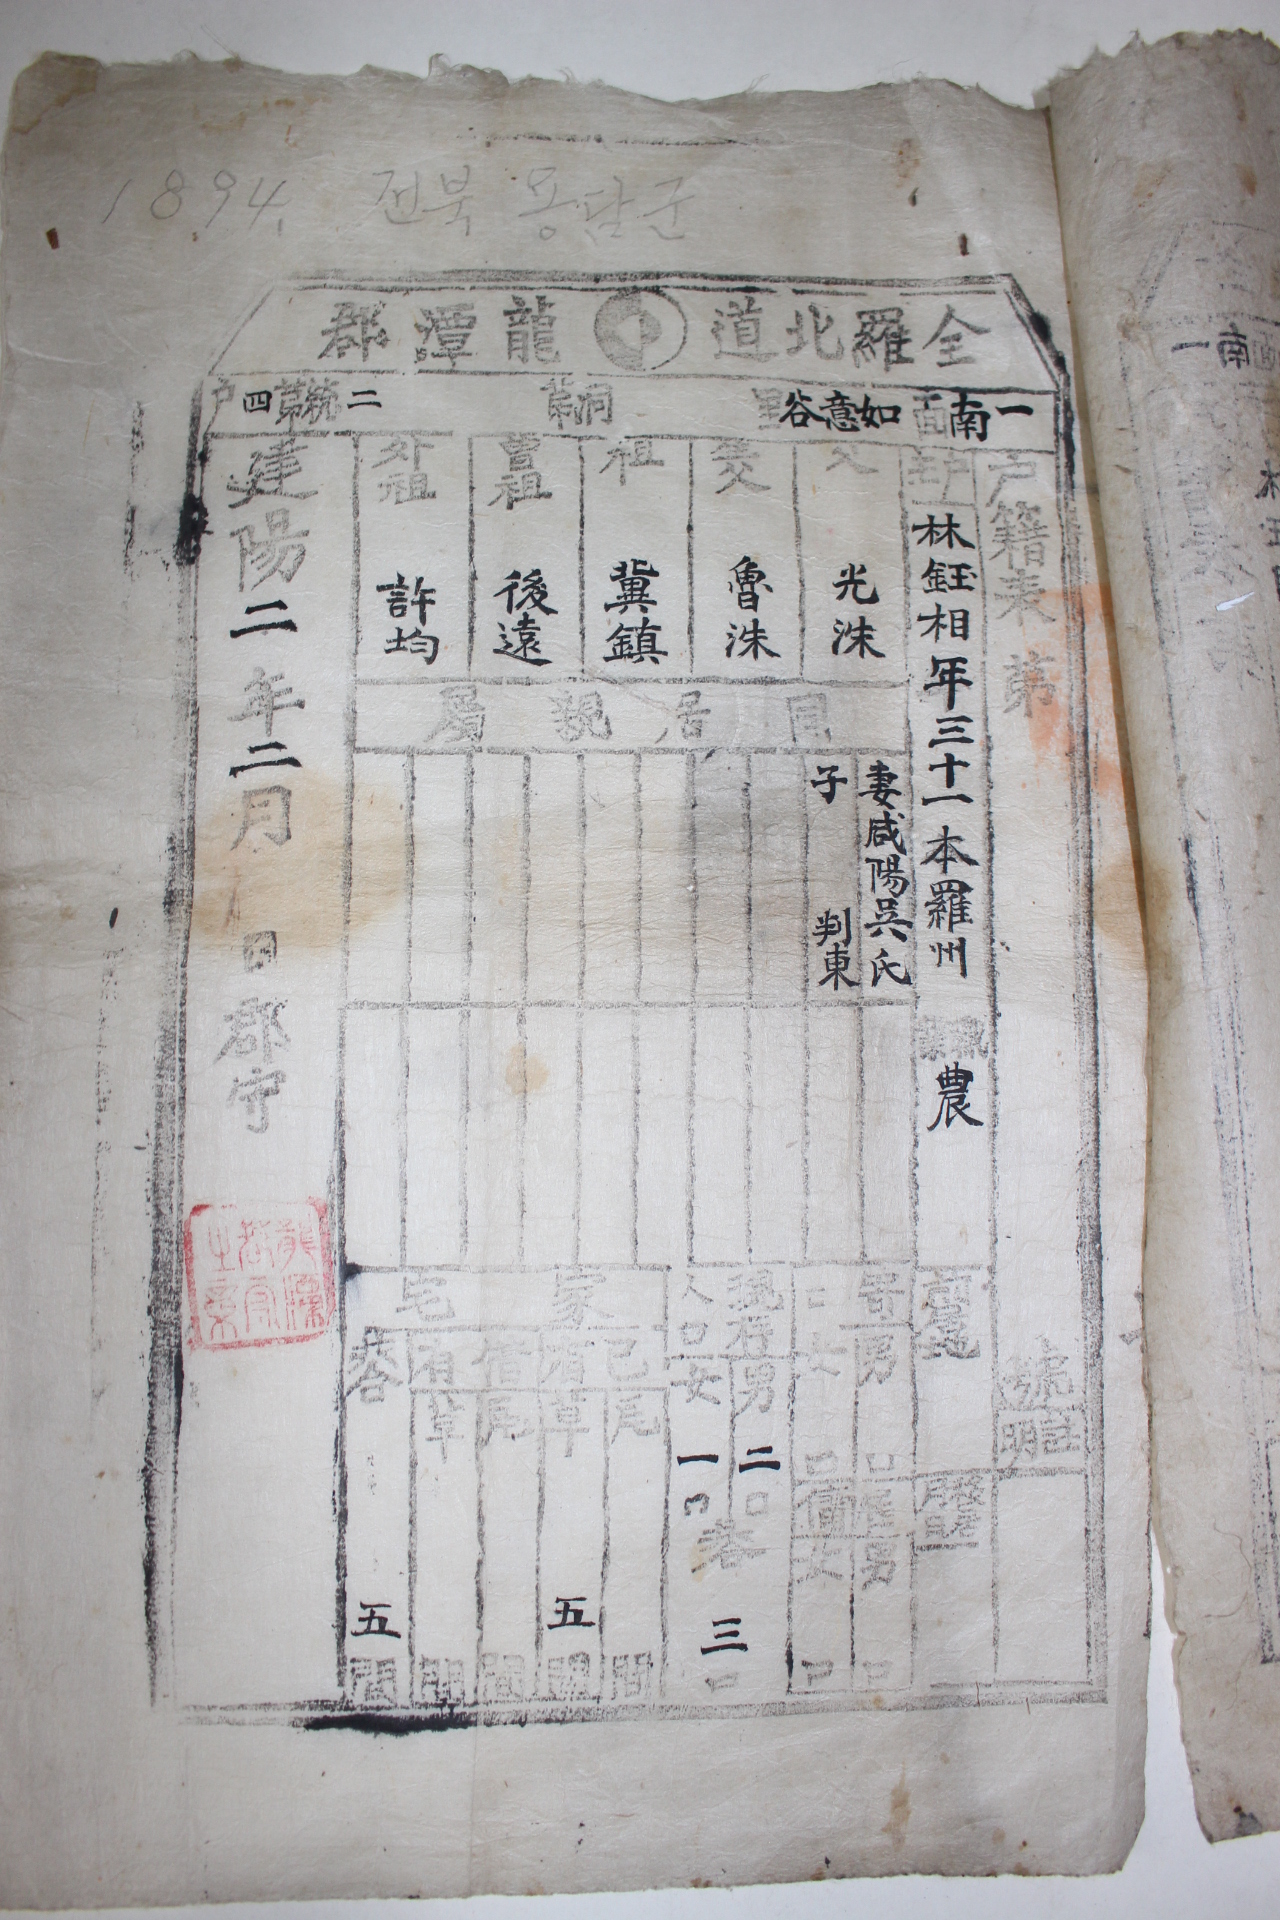 1894. 전북 용담군
全羅北道 龍潭郡
一南面 如意谷里 第 洞 二統第四戶
戶籍表 第 號
註明
戶主 林鈺相 年三十一 本羅州 職業 農
前居地
父 光洙
父 魯洙
祖 冀鎮
曾祖 後遠
外祖 許均
同居親屬
妻咸陽吳氏
子 判東
寄口 男 口 女 口
雇傭 男 口 女 口
現存人口 男 二口 女 一口 共三口
家宅
己有 瓦 間 草 五間
借有 瓦 間 草 間
共合 五間
建陽二年二月 日 郡守